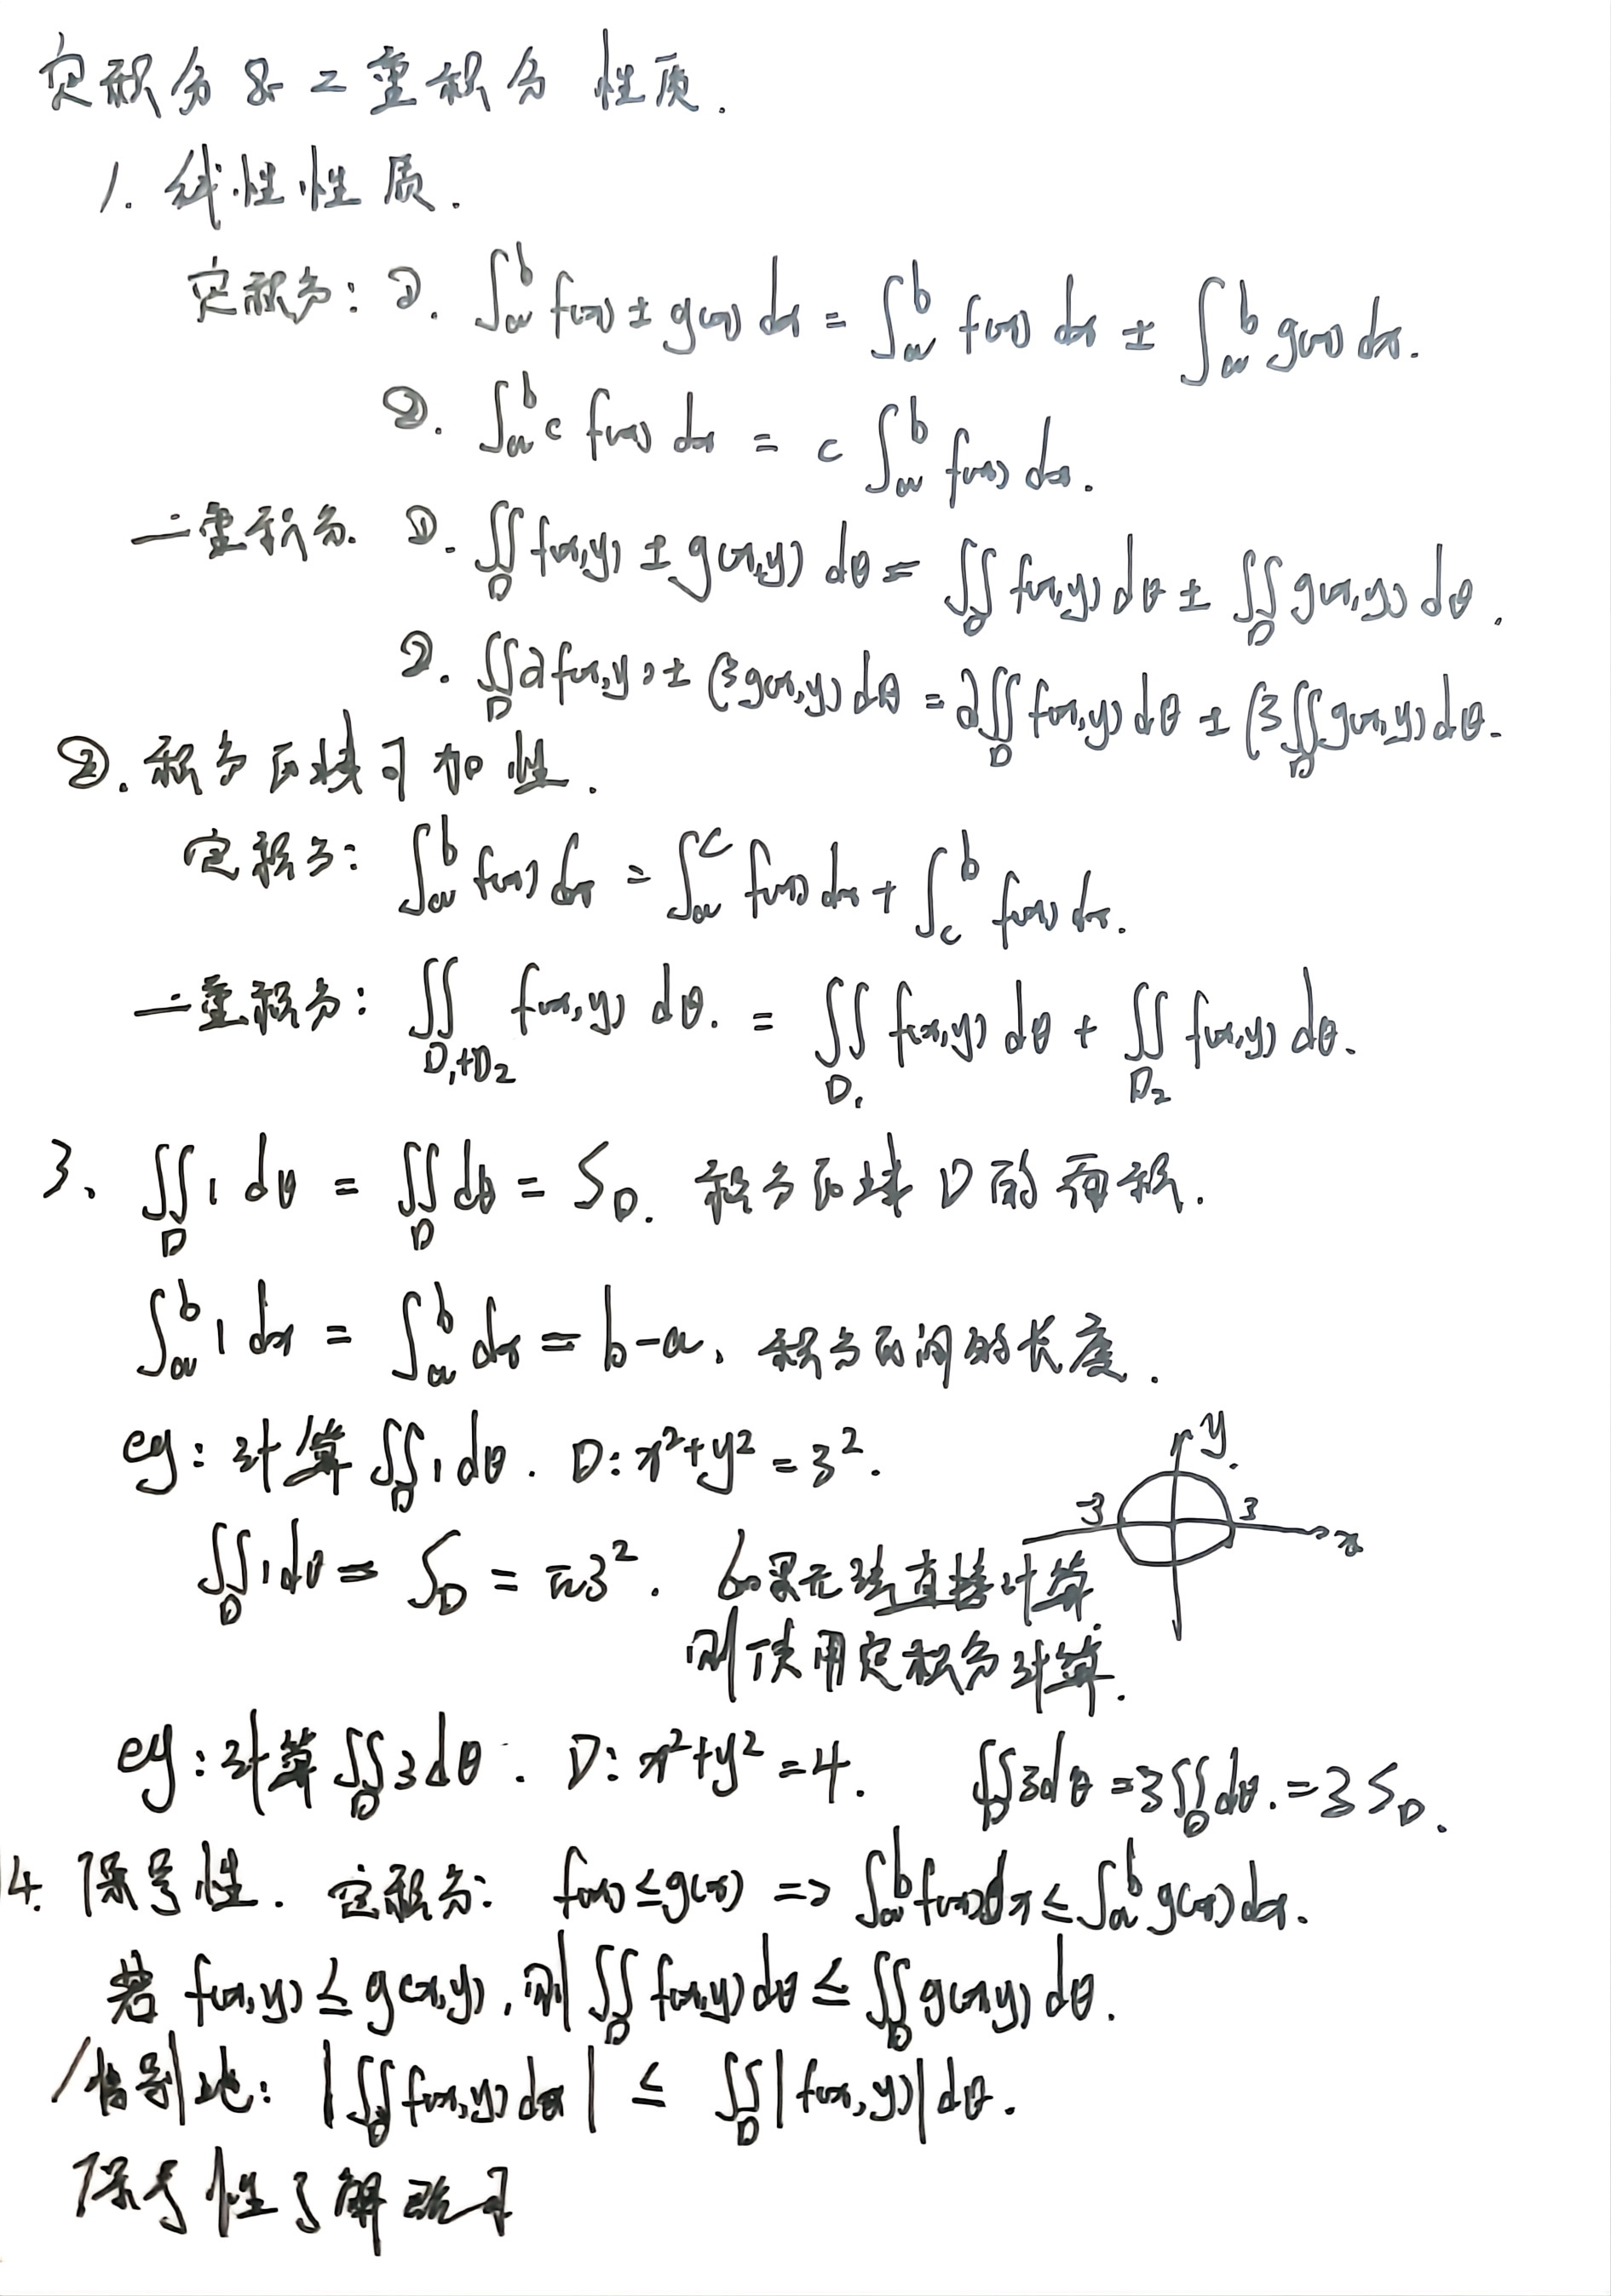 定积分 & 二重积分 性质.
1. 线性性质.
定积分: ①. ∫_a^b f(x) ± g(x) dx = ∫_a^b f(x) dx ± ∫_a^b g(x) dx.
②. ∫_a^b c f(x) dx = c ∫_a^b f(x) dx.
二重积分. ①. ∬_D f(x,y) ± g(x,y) dθ = ∬_D f(x,y) dθ ± ∬_D g(x,y) dθ.
②. ∬_D ∂f(x,y) ± βg(x,y) dθ = ∂∬_D f(x,y) dθ ± β∬_D g(x,y) dθ.
②. 积分区域可加性.
定积分: ∫_a^b f(x) dx = ∫_a^c f(x) dx + ∫_c^b f(x) dx.
二重积分: ∬_{D₁+D₂} f(x,y) dθ. = ∬_{D₁} f(x,y) dθ + ∬_{D₂} f(x,y) dθ.
3、 ∬_D 1 dθ = ∬_D dθ = S_D. 积分区域 D 的面积.
∫_a^b 1 dx = ∫_a^b dx = b-a, 积分区间的长度.
eg: 计算 ∬_D 1 dθ. D: x²+y²=3².
y
-3 3 x
∬_D 1 dθ = S_D = π3². 如果无法直接计算.
则使用定积分计算.
eg: 计算 ∬_D 3 dθ. D: x²+y²=4. ∬_D 3dθ = 3∬_D dθ. = 3 S_D.
4. 保号性. 定积分: f(x) ≤ g(x) => ∫_a^b f(x) dx ≤ ∫_a^b g(x) dx.
若 f(x,y) ≤ g(x,y), 则 ∬_D f(x,y) dθ ≤ ∬_D g(x,y) dθ.
特别地: |∬_D f(x,y) dθ| ≤ ∬_D |f(x,y)| dθ.
保号性了解即可